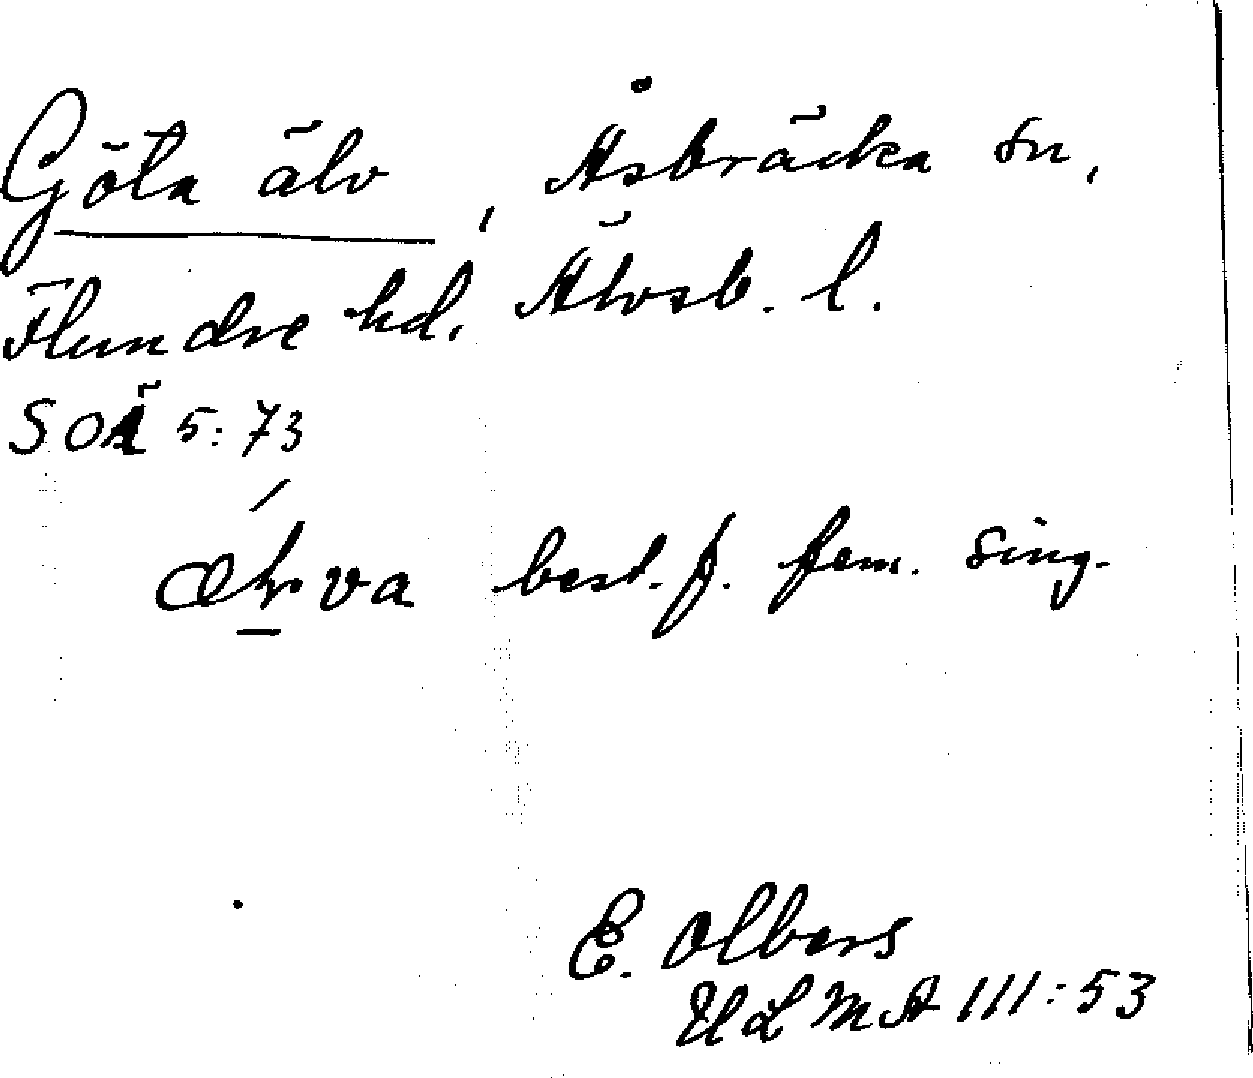 Göta älv, Åsbräcka sn,
Flundre hd. Älvsb. l.
SOÄ 5:73
best. f. fem. sing.
E. Olbers
ULMA 111:53